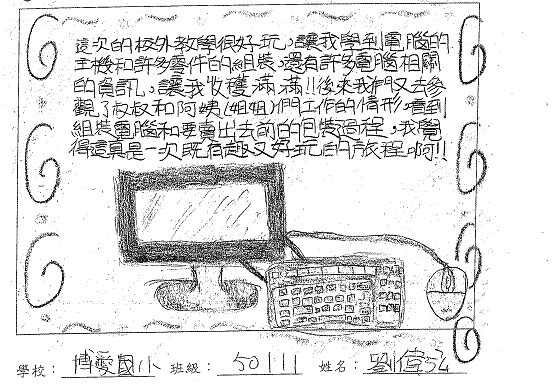 這次的校外教學很好玩,讓我學到電腦的
主機和許多零件的組裝,還有許多電腦相關
的資訊,讓我收穫滿滿!!後來我們又去參
觀了叔叔和阿姨(姐姐)們工作的情形,看到
組裝電腦和要賣出去前的包裝過程,我覺
得這真是一次既有趣又好玩的旅程啊!!
學校:博愛國小 班級:50111 姓名:劉偉弘